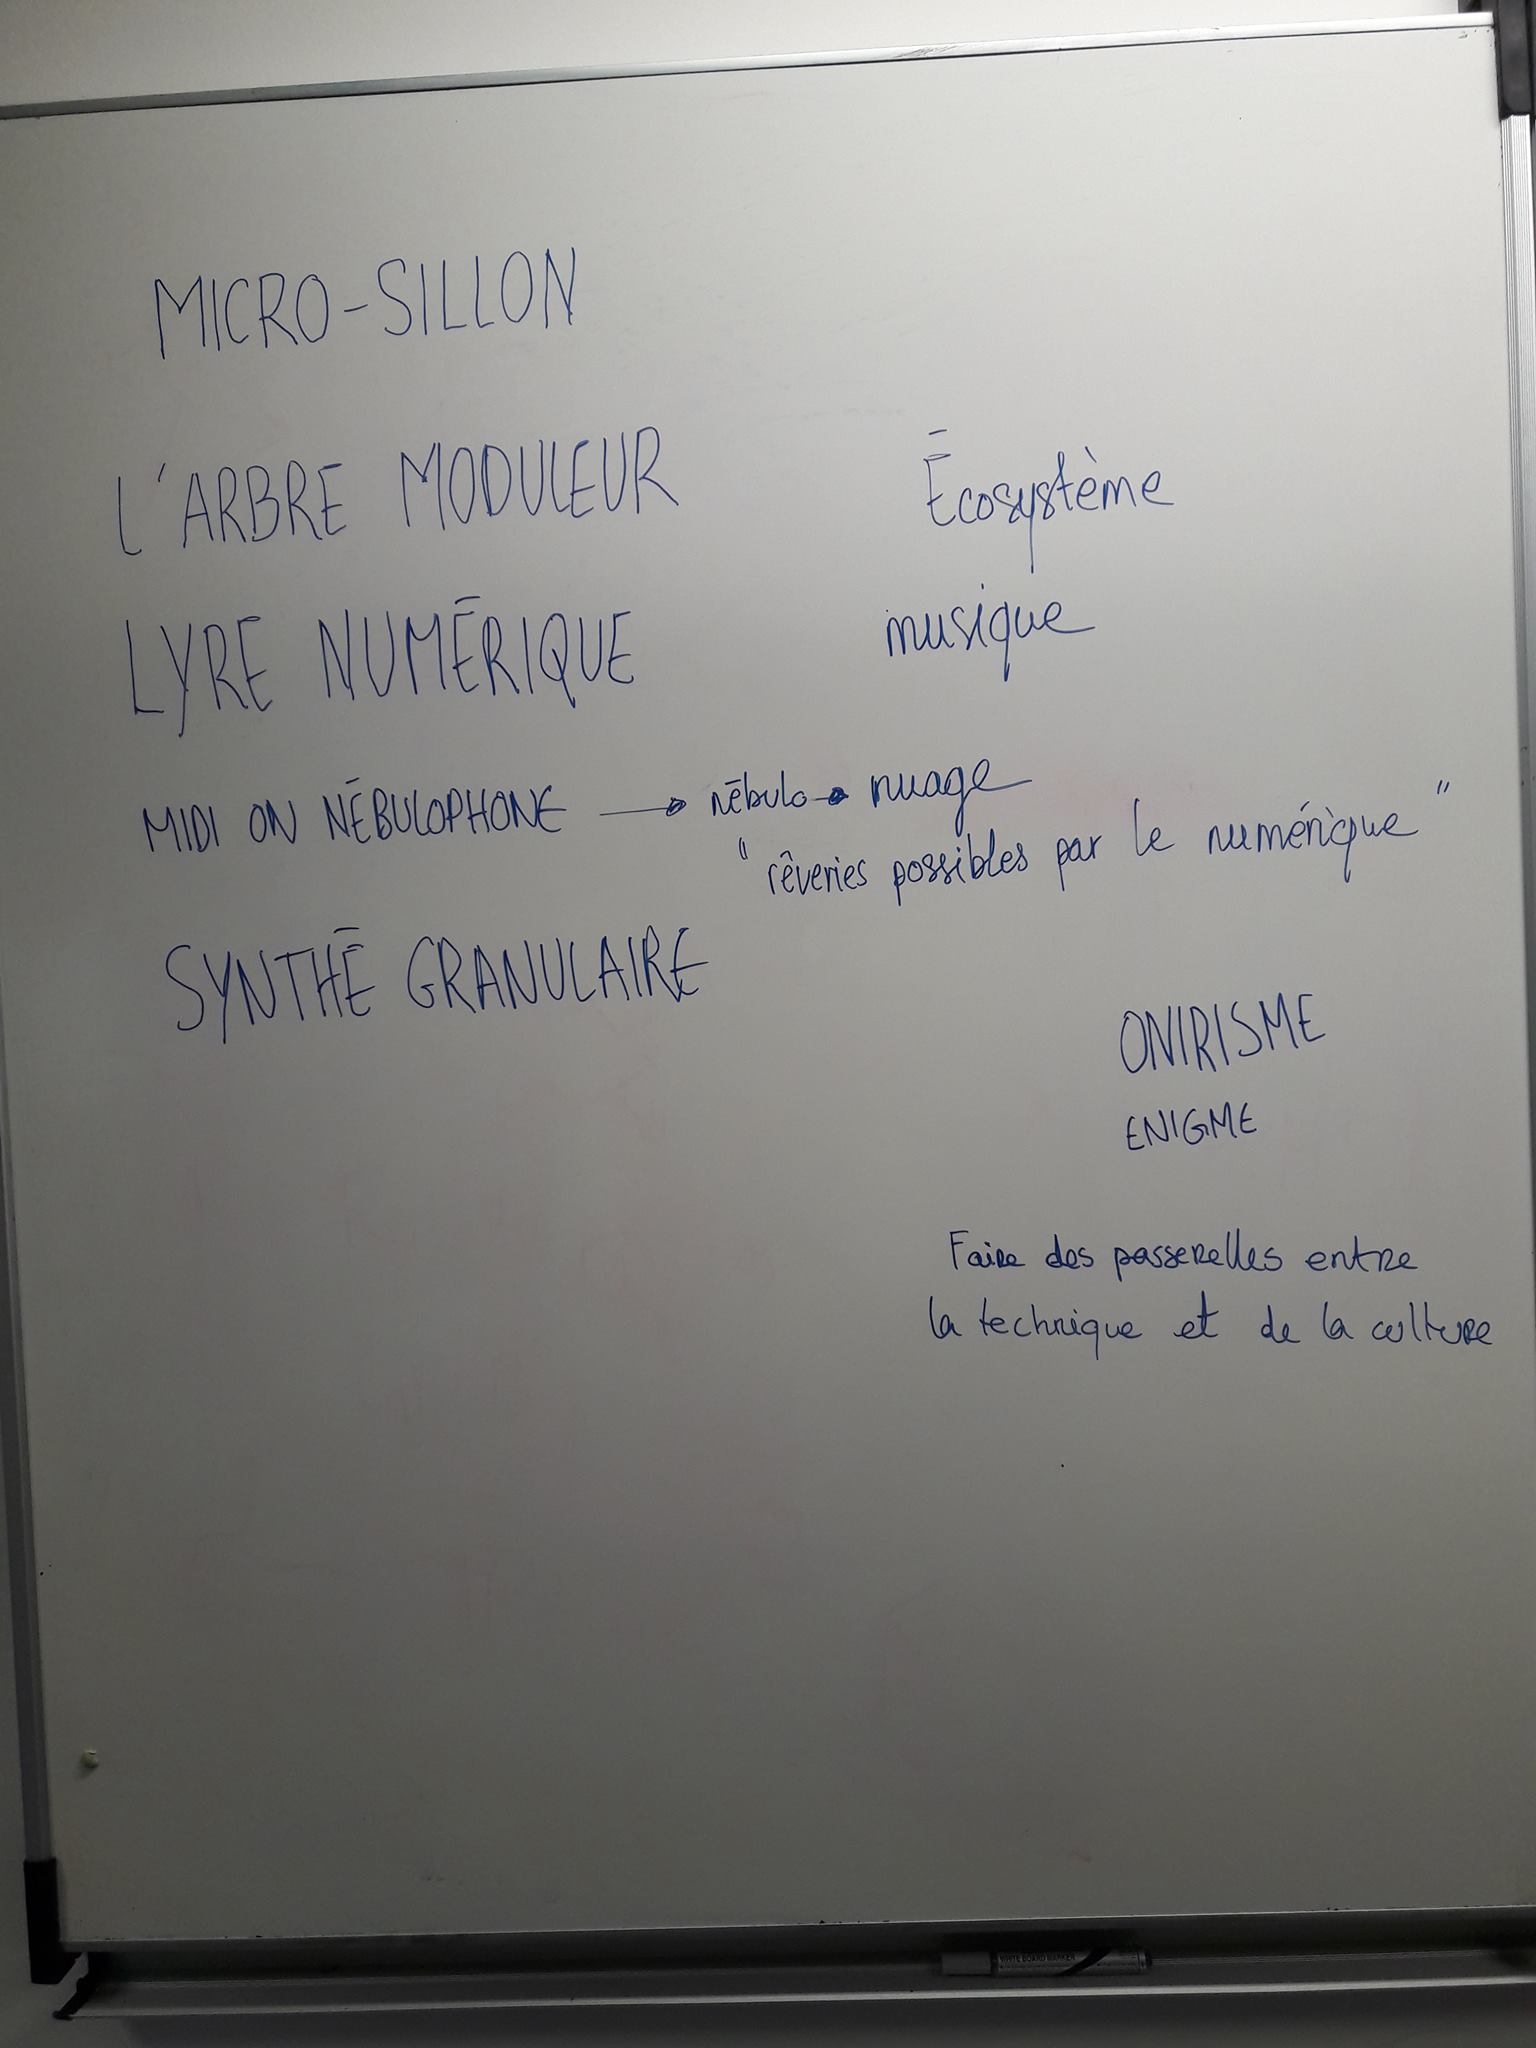 MICRO-SILLON
L'ARBRE MODULEUR
Écosystème
LYRE NUMÉRIQUE
musique
MIDI ON NÉBULOPHONE → nébulo → nuage
"rêveries possibles par le numérique"
SYNTHÉ GRANULAIRE
ONIRISME
ENIGME
Faire des passerelles entre
la technique et de la culture
WHITE BOARD MARKER